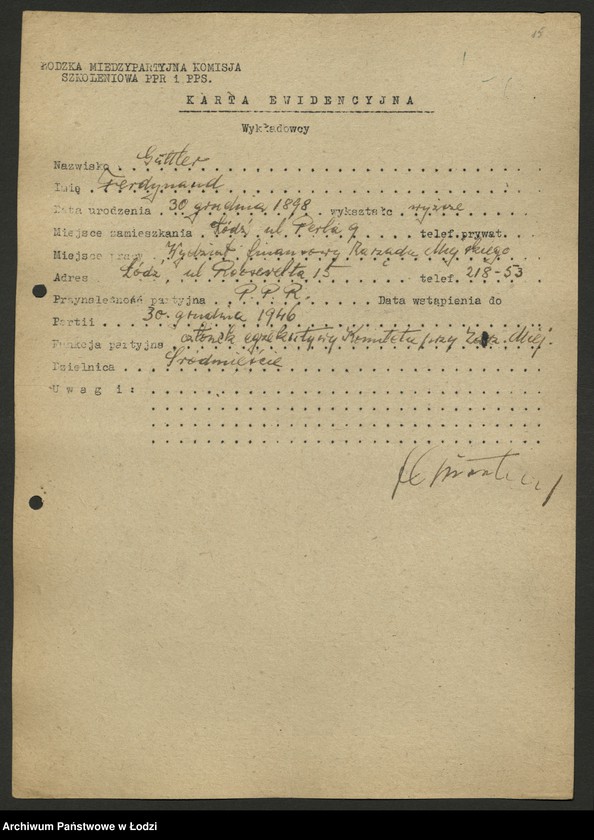 15
ŁODZKA MIEDZYPARTYJNA KOMISJA
SZKOLENIOWA PPR i PPS.
KARTA EWIDENCYJNA
Wykładowcy
Nazwisko Güttler
Imię Ferdynand
Data urodzenia 30 grudnia 1898 wykształc wyższe
Miejsce zamieszkania Łódź, ul. Perla 9 telef.prywat.
Miejsce pracy Wydział finansowy Zarządu Miejskiego
Adres Łódź, ul Roosevelta 15 telef. 218-53
Przynależność partyjna P.P.R. Data wstąpienia do
Partii 30 grudnia 1946
Funkcja partyjna członek egzekutywy Komitetu przy Zarz. Miej.
Dzielnica Śródmieście
Uwagi:
Archiwum Państwowe w Łodzi